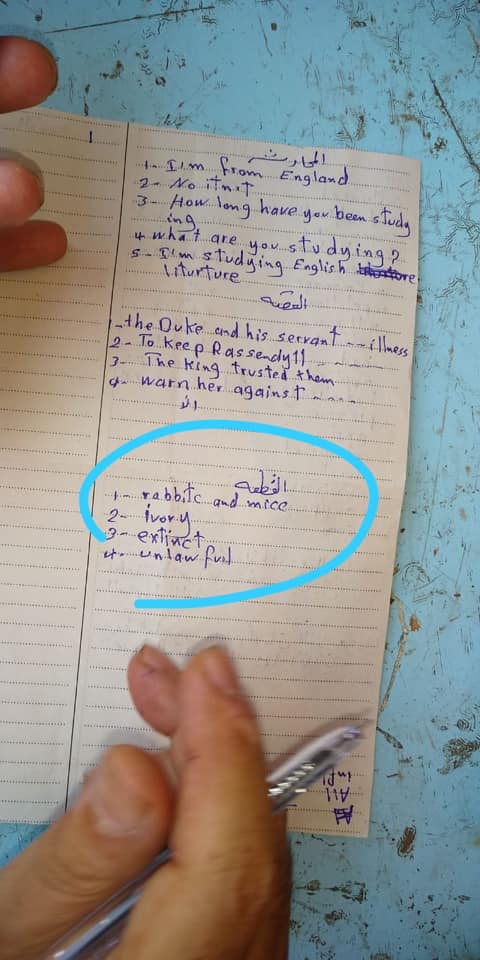 1
المحادثة
1- I'm from England
2- No itn't
3- How long have you been study
ing
4- what are you studying?
5- I'm studying English
liturture
القصة
1- the Duke and his servant -- illness
2- To keep Rassendyll - - - -
3- The King trusted them
4- warn her against - - - -
القطعة
1- rabbitc and mice
2- ivory
3- extinct
4- unlawful